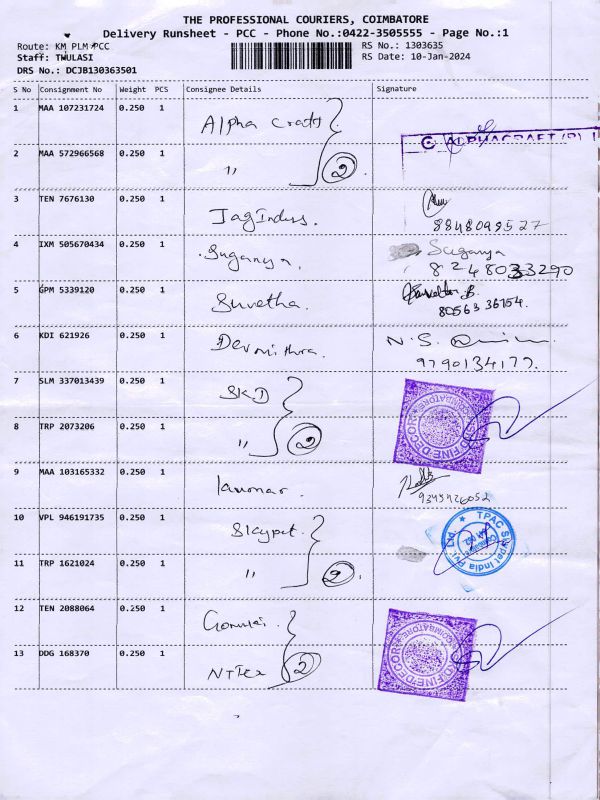 THE PROFESSIONAL COURIERS, COIMBATORE
Delivery Runsheet - PCC - Phone No.:0422-3505555 - Page No.:1
Route: KM PLM PCC
RS No.: 1303635
Staff: TWULASI
RS Date: 10-Jan-2024
DRS No.: DCJB130363501
S No Consignment No Weight PCS Consignee Details Signature
1 MAA 107231724 0.250 1 Alpha Craft
2 MAA 572966568 0.250 1 " 2
3 TEN 7676130 0.250 1 Jag Indus.
8848099527
4 IXM 505670434 0.250 1 Suganya. Suganya
8248033290
5 GPM 5339120 0.250 1 Suvetha.
80563 36154.
6 KDI 621926 0.250 1 Devamithra. N.S.
9790134177.
7 SLM 337013439 0.250 1 SKD
8 TRP 2073206 0.250 1 " 2
COIMBATORE
9 MAA 103165332 0.250 1
9345426052
10 VPL 946191735 0.250 1 Skypet.
TPAC Skypet India Pvt. Ltd.
11 TRP 1621024 0.250 1 " 2
12 TEN 2088064 0.250 1
13 DDG 168370 0.250 1 2
COIMBATORE